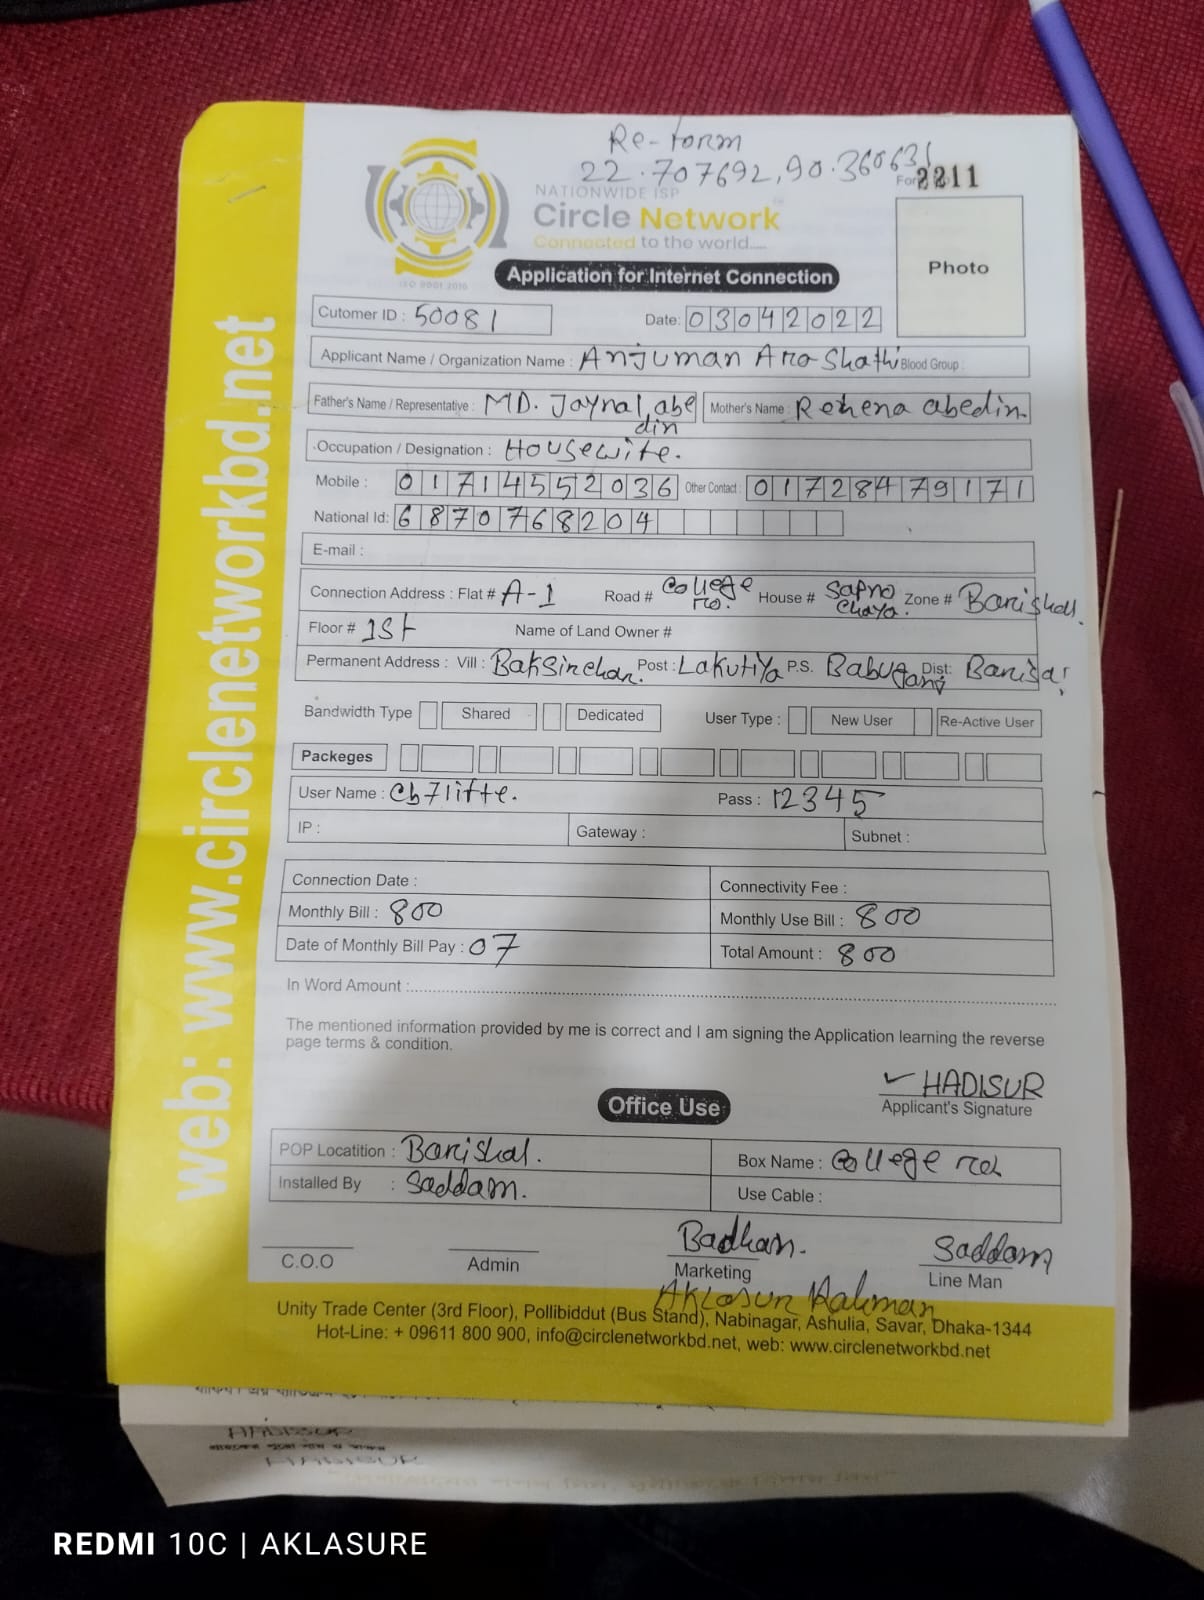 Re-form
22.707692,90.360631
For 2211
NATIONWIDE ISP
Circle Network
Connected to the world.....
ISO 9001 2015
Application for Internet Connection
Photo
Cutomer ID : 50081 Date: 03042022
Applicant Name / Organization Name : Anjuman Ara Shathi Blood Group :
Father's Name / Representative : MD. Jaynal abe
din
Mother's Name : Rehena abedin
Occupation / Designation : Housewife.
Mobile : 01714552036 Other Contact : 01728479171
National Id: 6870768204
E-mail :
Connection Address : Flat # A-1 Road # College ro. House # Sapno Chaya. Zone # Barishal.
Floor # 1st Name of Land Owner #
Permanent Address : Vill : Post : Lakutiya P.S. Babugang Dist:
Bandwidth Type Shared Dedicated User Type : New User Re-Active User
Packeges
User Name : cb7liffe. Pass : 12345
IP : Gateway : Subnet :
Connection Date : Connectivity Fee :
Monthly Bill : 800 Monthly Use Bill : 800
Date of Monthly Bill Pay : 07 Total Amount : 800
In Word Amount :
The mentioned information provided by me is correct and I am signing the Application learning the reverse
page terms & condition.
HADISUR
Applicant's Signature
Office Use
POP Locatition : Barishal. Box Name : College
Installed By : Saddam. Use Cable :
Badhan. Saddam
C.O.O Admin Marketing Line Man
Aklasur Rahman
Unity Trade Center (3rd Floor), Pollibiddut (Bus Stand), Nabinagar, Ashulia, Savar, Dhaka-1344
Hot-Line: + 09611 800 900, info@circlenetworkbd.net, web: www.circlenetworkbd.net
web: www.circlenetworkbd.net
HADISUR
HADISUR
REDMI 10C | AKLASURE